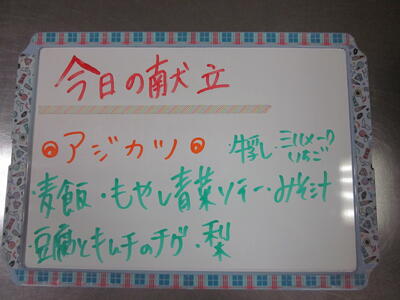 今日の献立
アジカツ
牛乳・ミルメーク
いちご
・麦飯・もやし青菜ソテー・みそ汁
豆腐とキムチのチゲ・梨